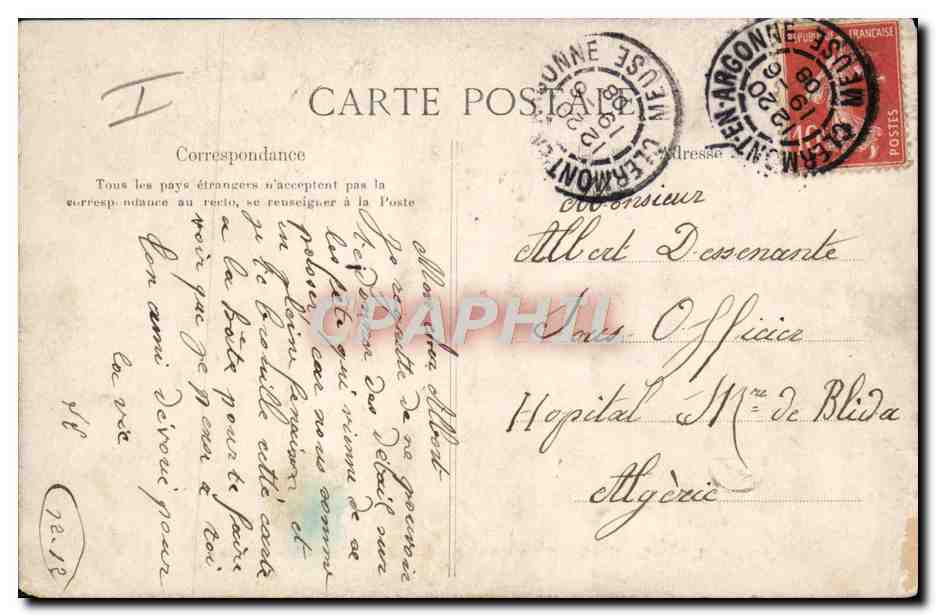 I
CARTE POSTALE
Correspondance
Tous les pays étrangers n'acceptent pas la
correspondance au recto, se renseigner à la Poste
Adresse
CLERMONT-EN-ARGONNE
MEUSE
12 20
19 - 6
08
CLERMONT-EN-ARGONNE
MEUSE
12 20
19 - 6
08
REPUBLIQUE FRANÇAISE
10
POSTES
Monsieur
Albert Dessenante
Sous Officier
Hopital Mre de Blida
Algérie
Mon cha Albert
Je regrette de ne pouvoir
te donner des détail sur
les fête qui vienne de ce
passer car nous somme
in pleine fenaison et
je te brouille cette carte
a la hâte pour te faire
voir que je pense a toi
Ton ami dévoué pour
la vie
CPAPHIL